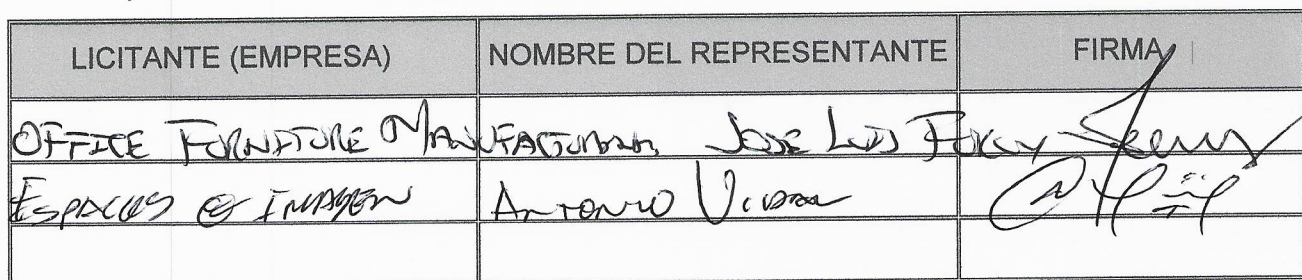 LICITANTE (EMPRESA) NOMBRE DEL REPRESENTANTE FIRMA
OFFICE FURNITURE JOSE LUIS
ESPACIOS E IMAGEN ANTONIO